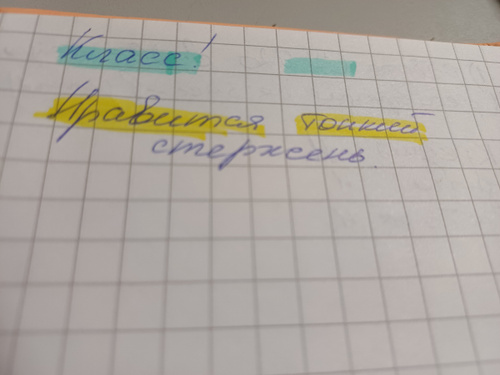 Класс!
Нравится тонкий
стержень